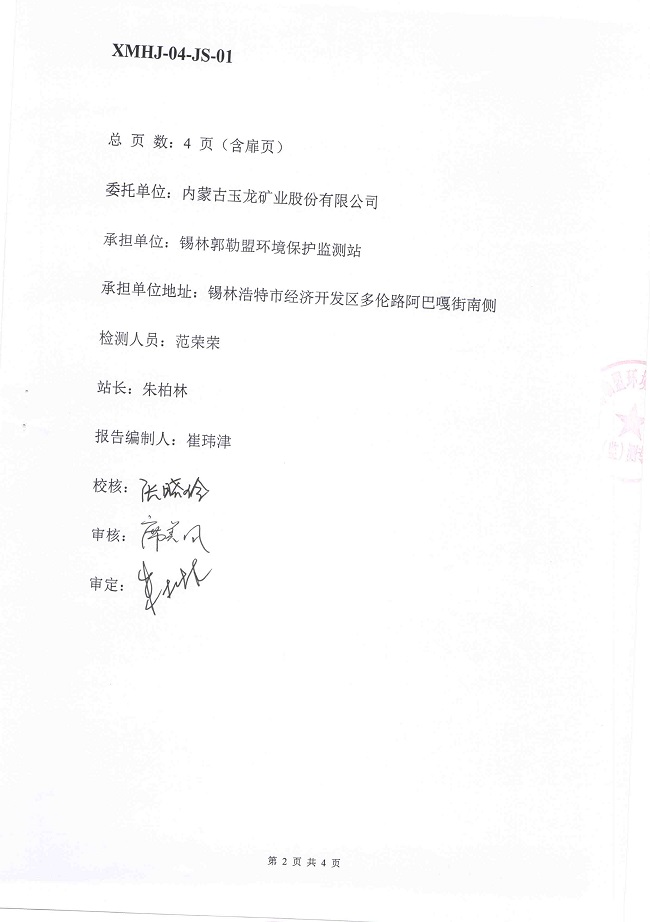 XMHJ-04-JS-01
总 页 数：4 页（含扉页）
委托单位：内蒙古玉龙矿业股份有限公司
承担单位：锡林郭勒盟环境保护监测站
承担单位地址：锡林浩特市经济开发区多伦路阿巴嘎街南侧
检测人员：范荣荣
站长：朱柏林
报告编制人：崔玮津
校核：张晓玲
审核：席美凤
审定：朱柏林
第 2 页 共 4 页